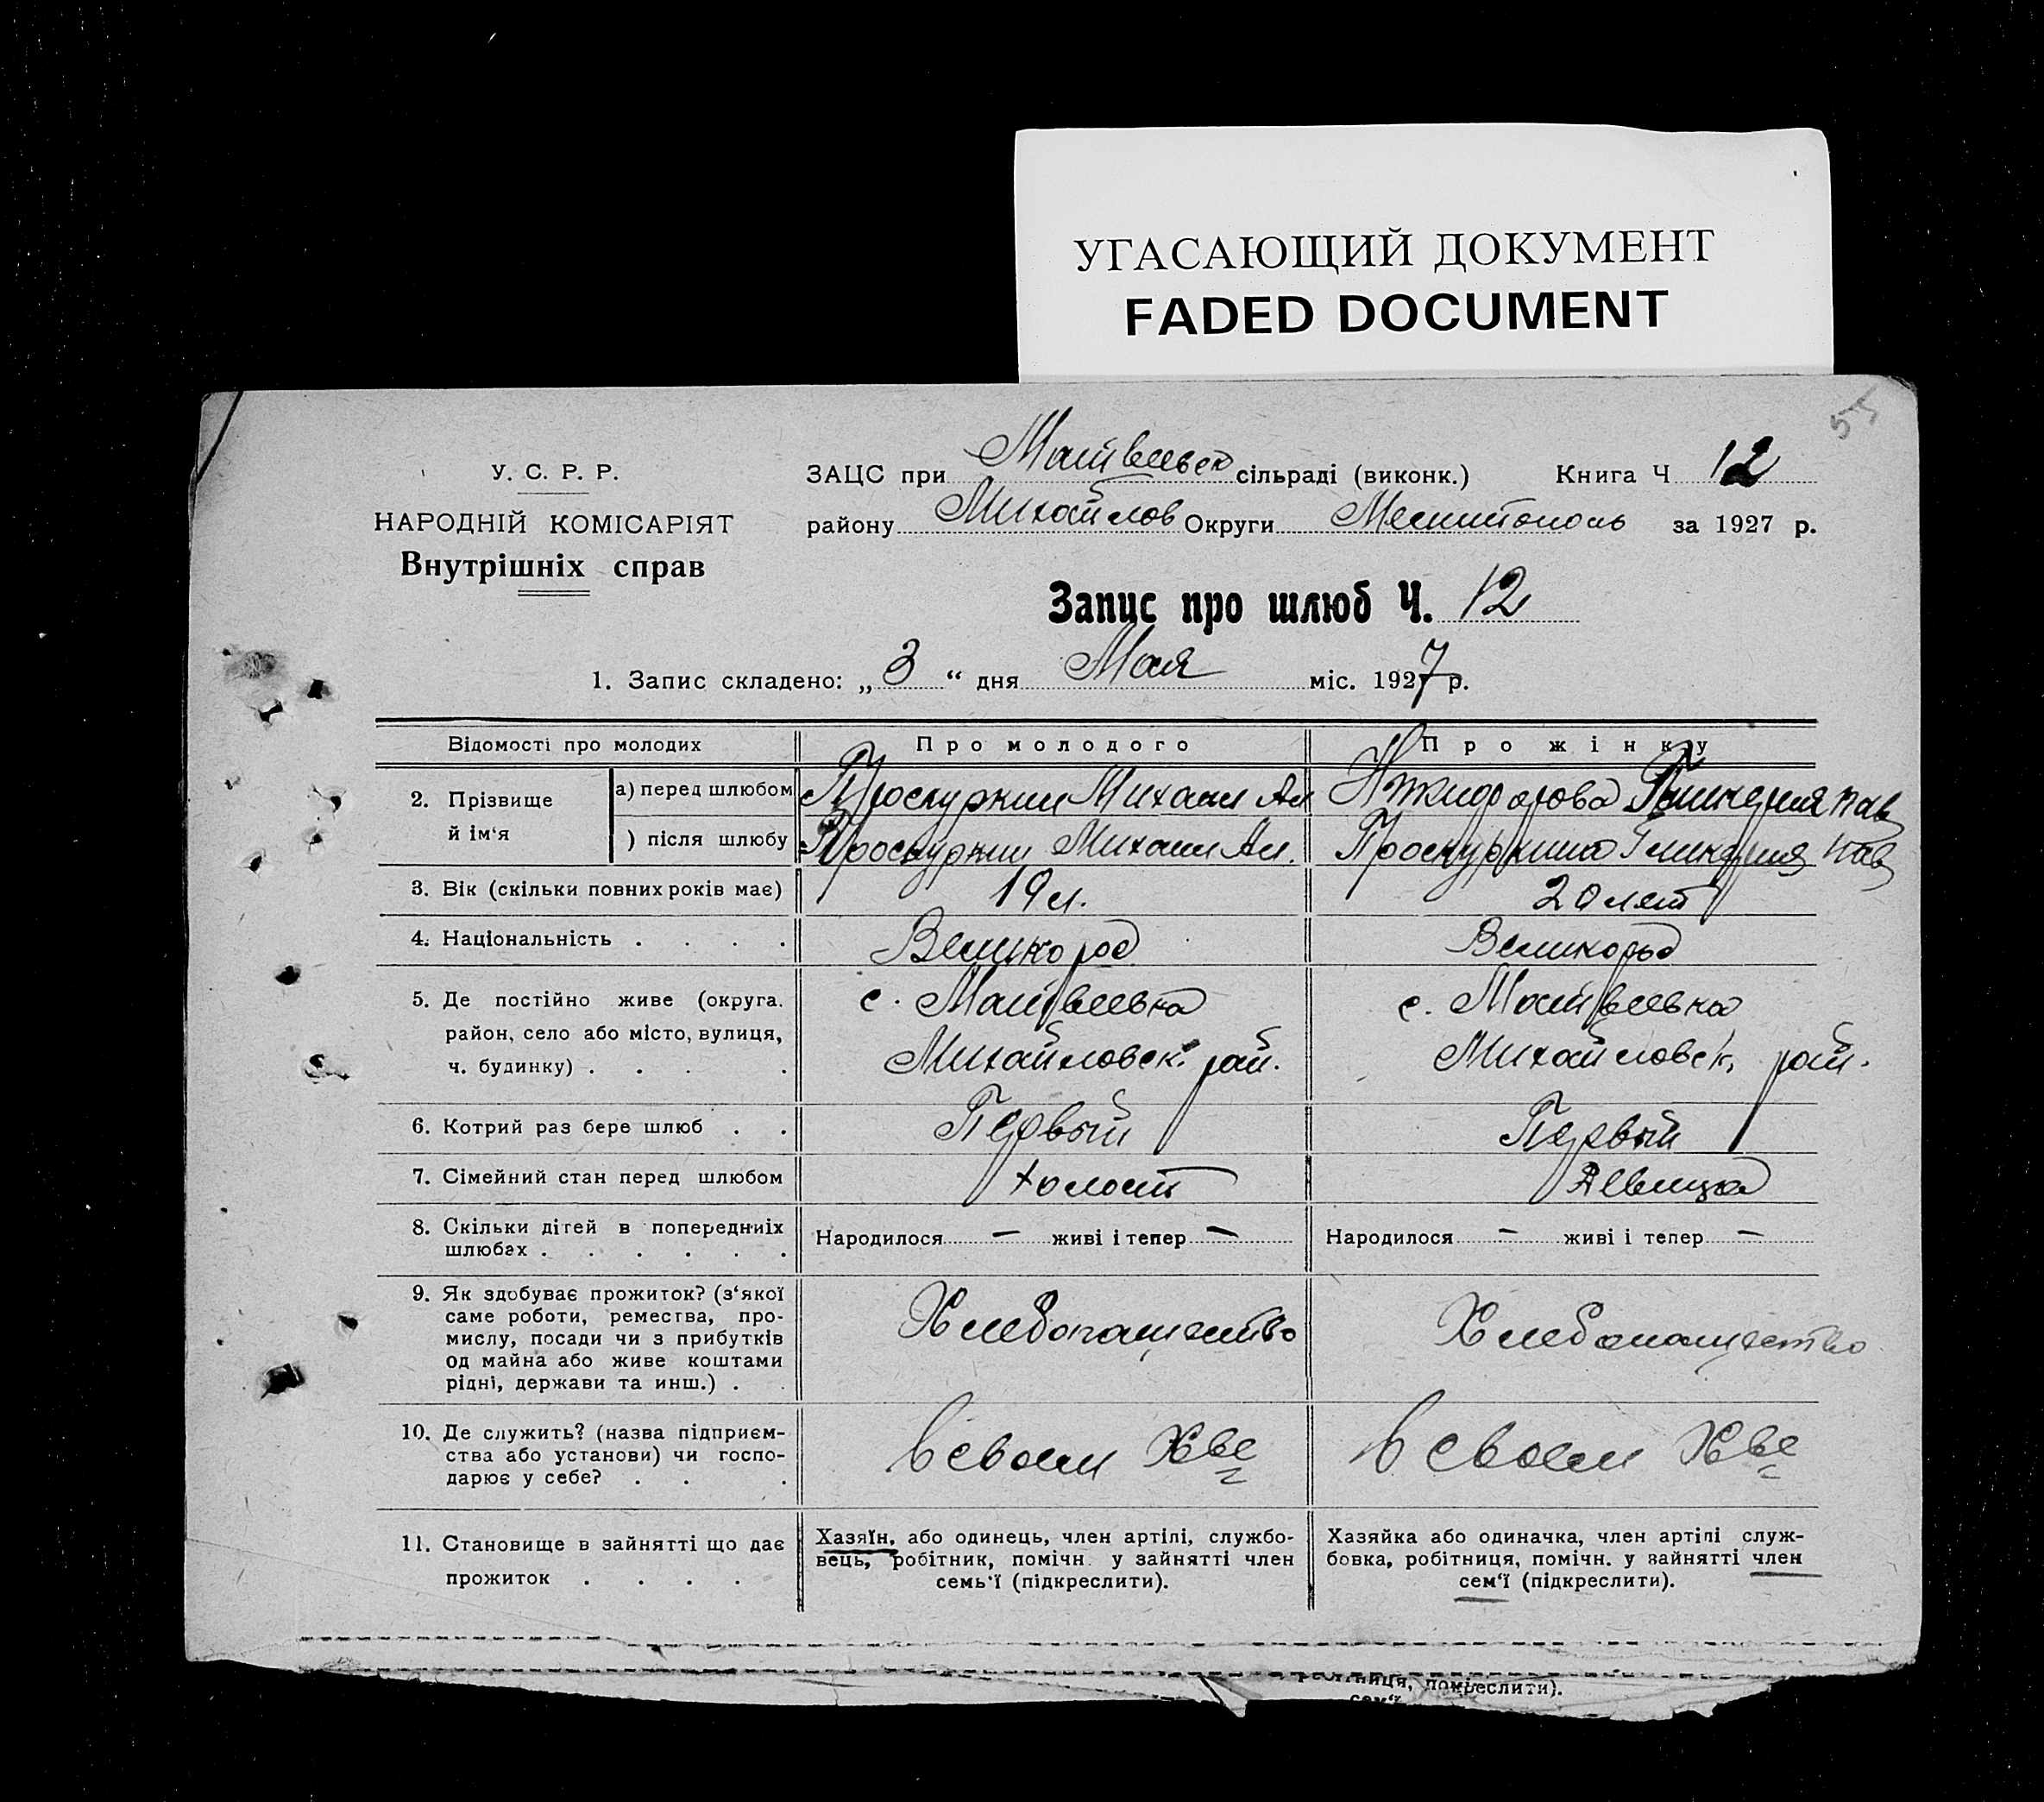 УГАСАЮЩИЙ ДОКУМЕНТ
FADED DOCUMENT
55
У. С. Р. Р.
НАРОДНІЙ КОМІСАРІЯТ
Внутрішніх справ
ЗАЦС при Матвеевск сільраді (виконк.) Книга Ч 12
району Михайлов Округи Мелитополь за 1927 р.
Запис про шлюб Ч. 12
1. Запис складено: „ 3 “ дня Мая міс. 1927 р.
Відомості про молодих
Про молодого
Про жінку
2. Прізвище й ім‘я
а) перед шлюбом
Проскурнин Михаил Ал
Павл
) після шлюбу
Проскурнин Михаил Ал.
Проскурнина Пав
3. Вік (скільки повних років має)
19 л.
20 лет
4. Національність . . . .
Великорос
Великорос
5. Де постійно живе (округа. район, село або місто, вулиця, ч. будинку) . . . .
с. Матвеевка
Михайловск. рай.
с. Матвеевка
Михайловск. рай.
6. Котрий раз бере шлюб . .
Первый
Первый
7. Сімейний стан перед шлюбом
холост
Девица
8. Скільки дітей в попередниіх шлюбах . . . . . .
Народилося — живі і тепер —
Народилося — живі і тепер —
9. Як здобуває прожиток? (з‘якої саме роботи, ремества, промислу, посади чи з прибутків од майна або живе коштами рідні, держави та инш.) .
Хлебопашество
Хлебопашество
10. Де служить? (назва підприємства або установи) чи господарює у себе? . . .
в своем Хве
в своем Хве
11. Становище в зайнятті що дає прожиток . . . .
Хазяїн, або одинець, член артілі, службовець, робітник, помічн. у зайнятті член семь‘ї (підкреслити).
Хазяйка або одиначка, член артілі службовка, робітниця, помічн. у зайнятті член сем‘ї (підкреслити).